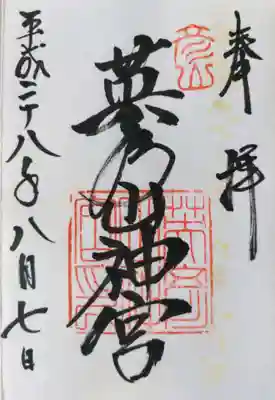 奉拝
英彦山神宮
平成二十八年八月七日